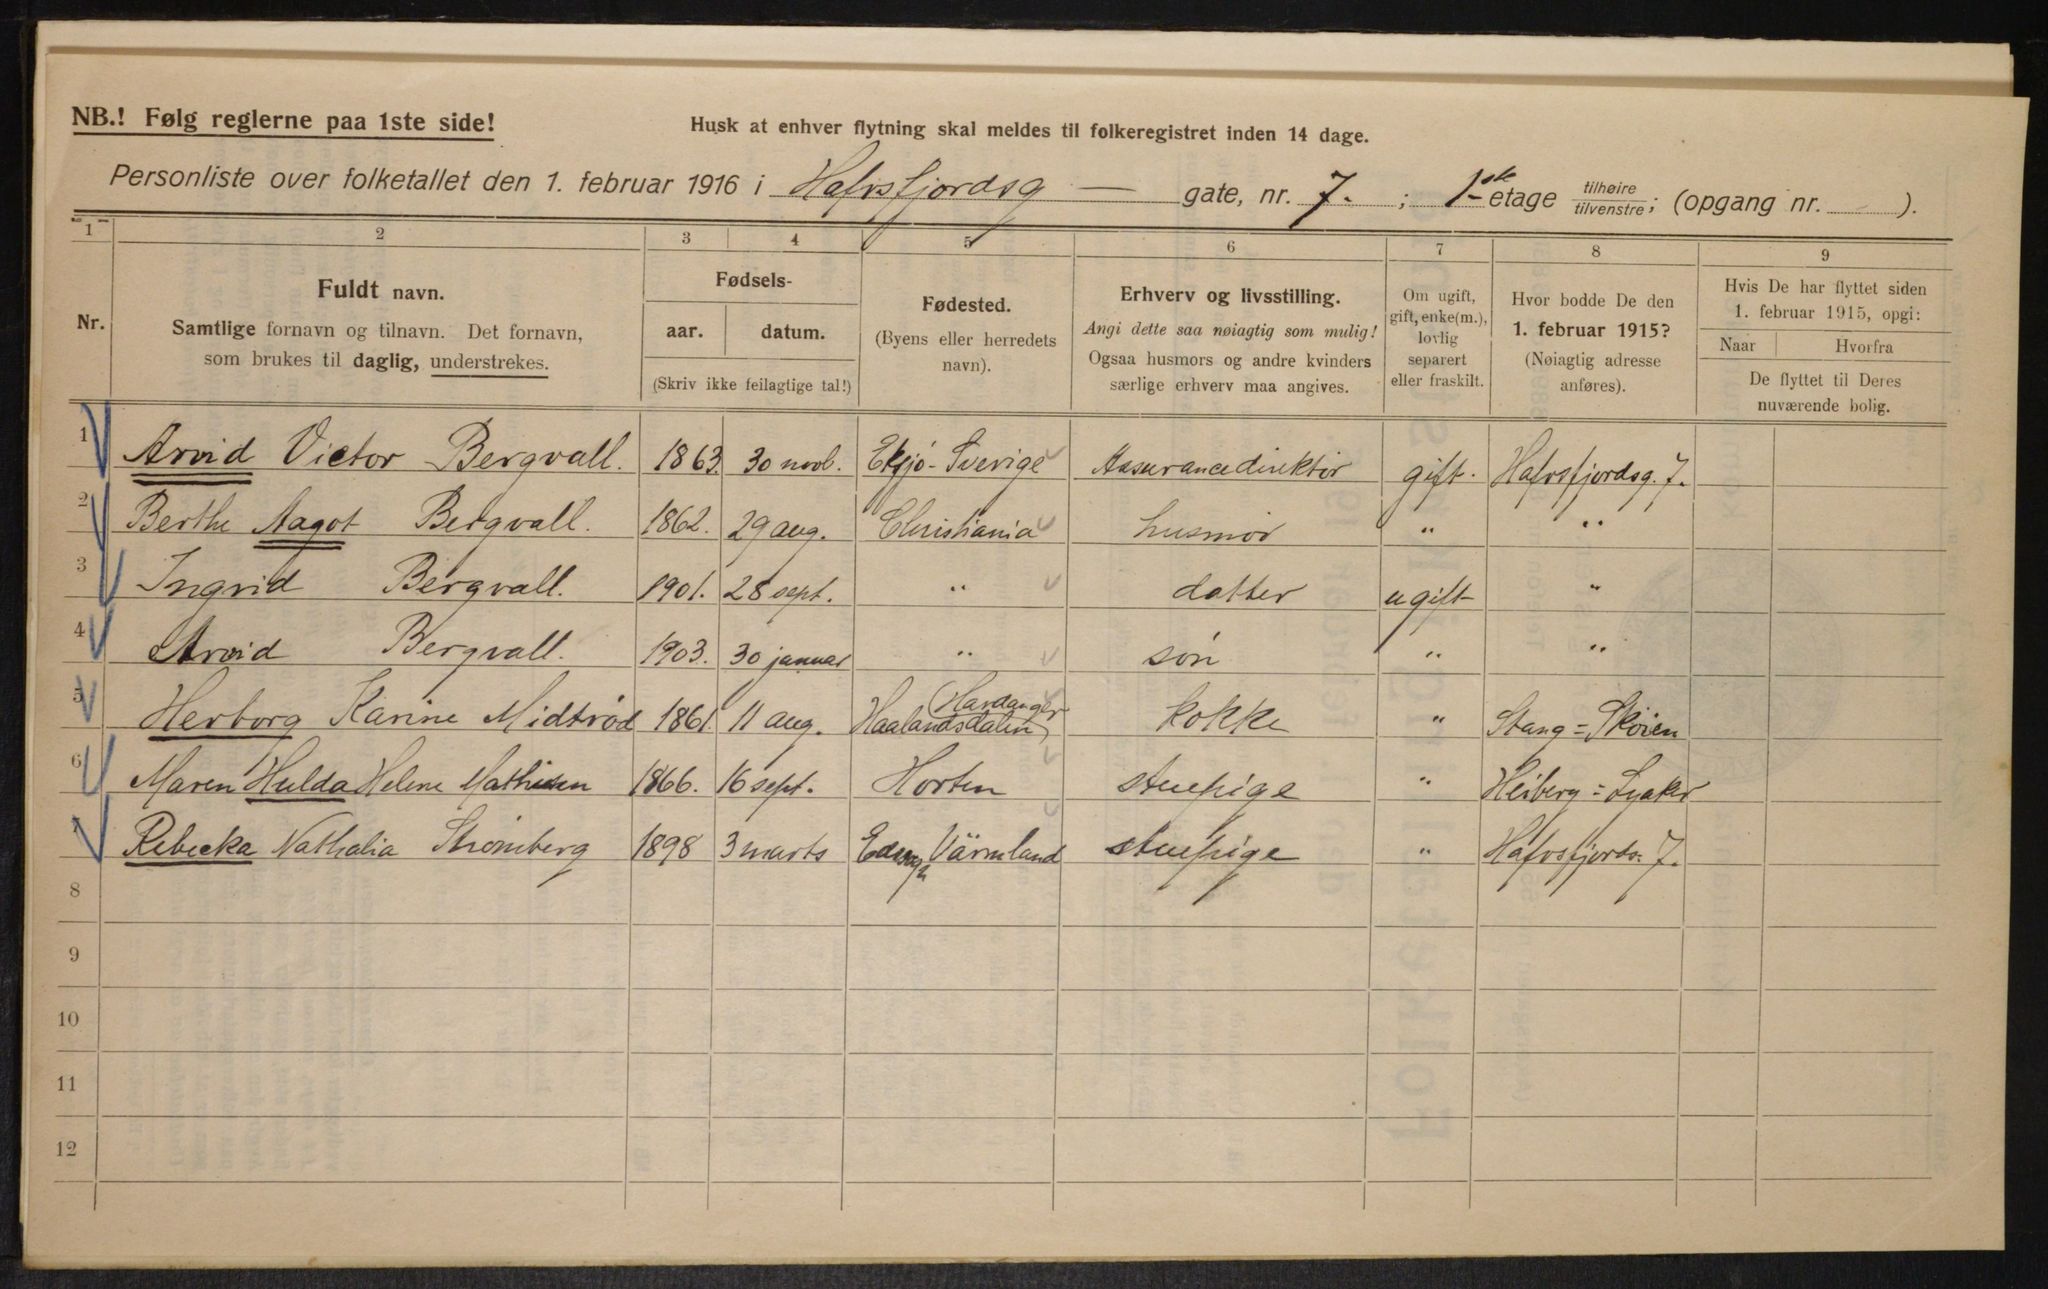 NB.! Følg reglerne paa 1ste side!
Husk at enhver flytning skal meldes til folkeregistret inden 14 dage.
Personliste over folketallet den 1. februar 1916 i Hafvsfjordsg — gate, nr. 7. ; 1ste etage tilhøire / tilvenstre; (opgang nr. ).
1 2 3 4 5 6 7 8 9
Nr.
Fuldt navn.
Samtlige fornavn og tilnavn. Det fornavn,
som brukes til daglig, understrekes.
Fødsels-
aar. datum.
(Skriv ikke feilagtige tal!)
Fødested.
(Byens eller herredets
navn).
Erhverv og livsstilling.
Angi dette saa nøiagtig som mulig!
Ogsaa husmors og andre kvinders
særlige erhverv maa angives.
Om ugift,
gift, enke(m.),
lovlig
separert
eller fraskilt.
Hvor bodde De den
1. februar 1915?
(Nøiagtig adresse
anføres).
Hvis De har flyttet siden
1. februar 1915, opgi:
Naar Hvorfra
De flyttet til Deres
nuværende bolig.
1 Arvid Victor Bergvall. 1863. 30 novb. Eksjö - Sverige Assurancedirektør gift. Hafvsfjordsg. 7.
2 Berthe Aagot Bergvall. 1862. 29 aug. Christiania husmor " "
3 Ingrid Bergvall. 1901. 28 sept. " datter ugift "
4 Arvid Bergvall. 1903. 30 januar " søn " "
5 Herborg Karine Midtrød 1861. 11 aug. Haalandsdalen (Hardanger) kokke " Stang = Skøien
6 Maren Hulda Helene Mathisen 1866. 16 sept. Horten stuepige " Heiberg = Lysaker
7 Rebecka Nathalia Strömberg 1898 3 marts Värmland stuepige " Hafvsfjords. 7.
8
9
10
11
12